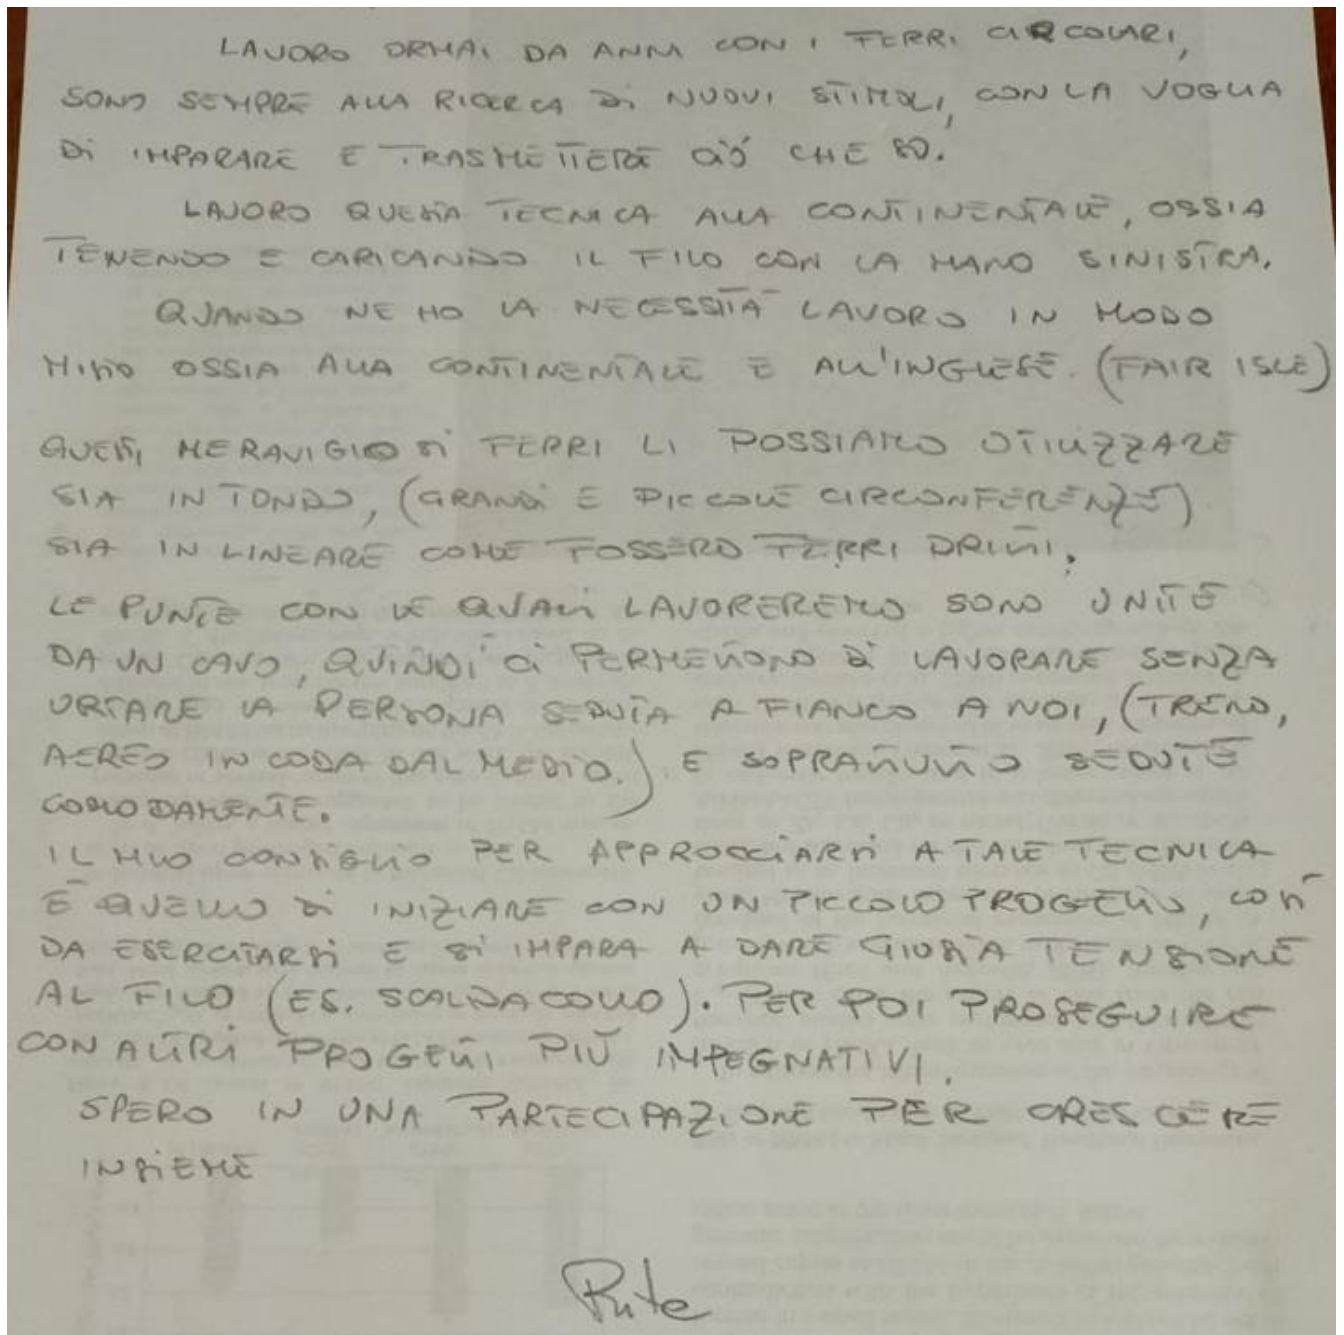 LAVORO ORMAI DA ANNI CON I FERRI CIRCOLARI,
SONO SEMPRE ALLA RICERCA DI NUOVI STIMOLI, CON LA VOGLIA
DI IMPARARE E TRASMETTERE CIÓ CHE SO.
LAVORO QUESTA TECNICA ALLA CONTINENTALE, OSSIA
TENENDO E CARICANDO IL FILO CON LA MANO SINISTRA.
QUANDO NE HO LA NECESSITÀ LAVORO IN MODO
MISTO OSSIA ALLA CONTINENTALE E ALL'INGLESE. (FAIR ISLE)
QUESTI MERAVIGIOSI FERRI LI POSSIAMO UTILIZZARE
SIA IN TONDO, (GRANDI E PICCOLE CIRCONFERENZE)
SIA IN LINEARE COME FOSSERO FERRI DRITTI.
LE PUNTE CON LE QUALI LAVOREREMO SONO UNITE
DA UN CAVO, QUINDI CI PERMETTONO DI LAVORARE SENZA
URTARE LA PERSONA SEDUTA A FIANCO A NOI, (TRENO,
AEREO IN CODA DAL MEDICO.) E SOPRATTUTTO SEDUTE
COMODAMENTE.
IL MIO CONSIGLIO PER APPROCCIARSI A TALE TECNICA
È QUELLO DI INIZIARE CON UN PICCOLO PROGETTO, COSÌ
DA ESERCITARSI E SI IMPARA A DARE GIUSTA TENSIONE
AL FILO (ES. SCALDACOLLO). PER POI PROSEGUIRE
CON ALTRI PROGETTI PIÙ IMPEGNATIVI.
SPERO IN UNA PARTECIPAZIONE PER CRESCERE
INSIEME
Rute